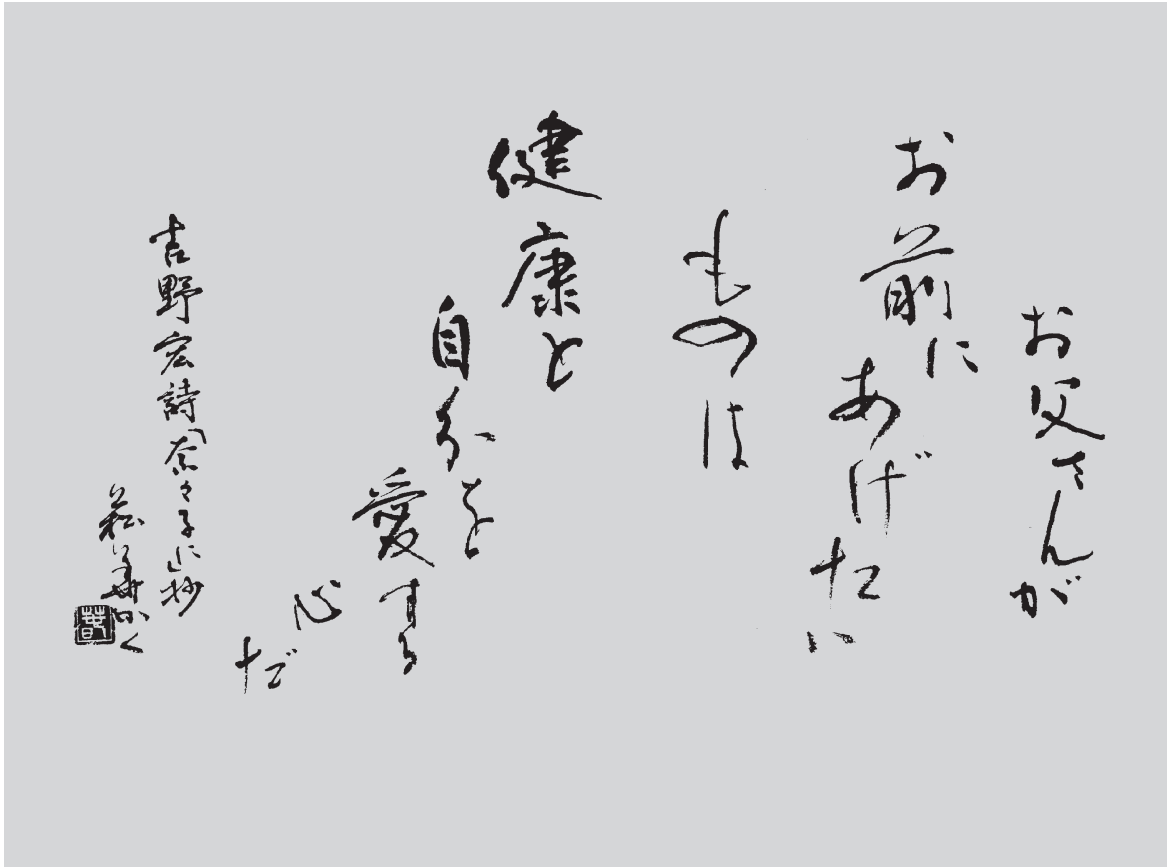 お父さんが
お前に
あげたい
ものは
健康と
自分を
愛する
心
だ
吉野宏詩「奈々子に」抄
かく